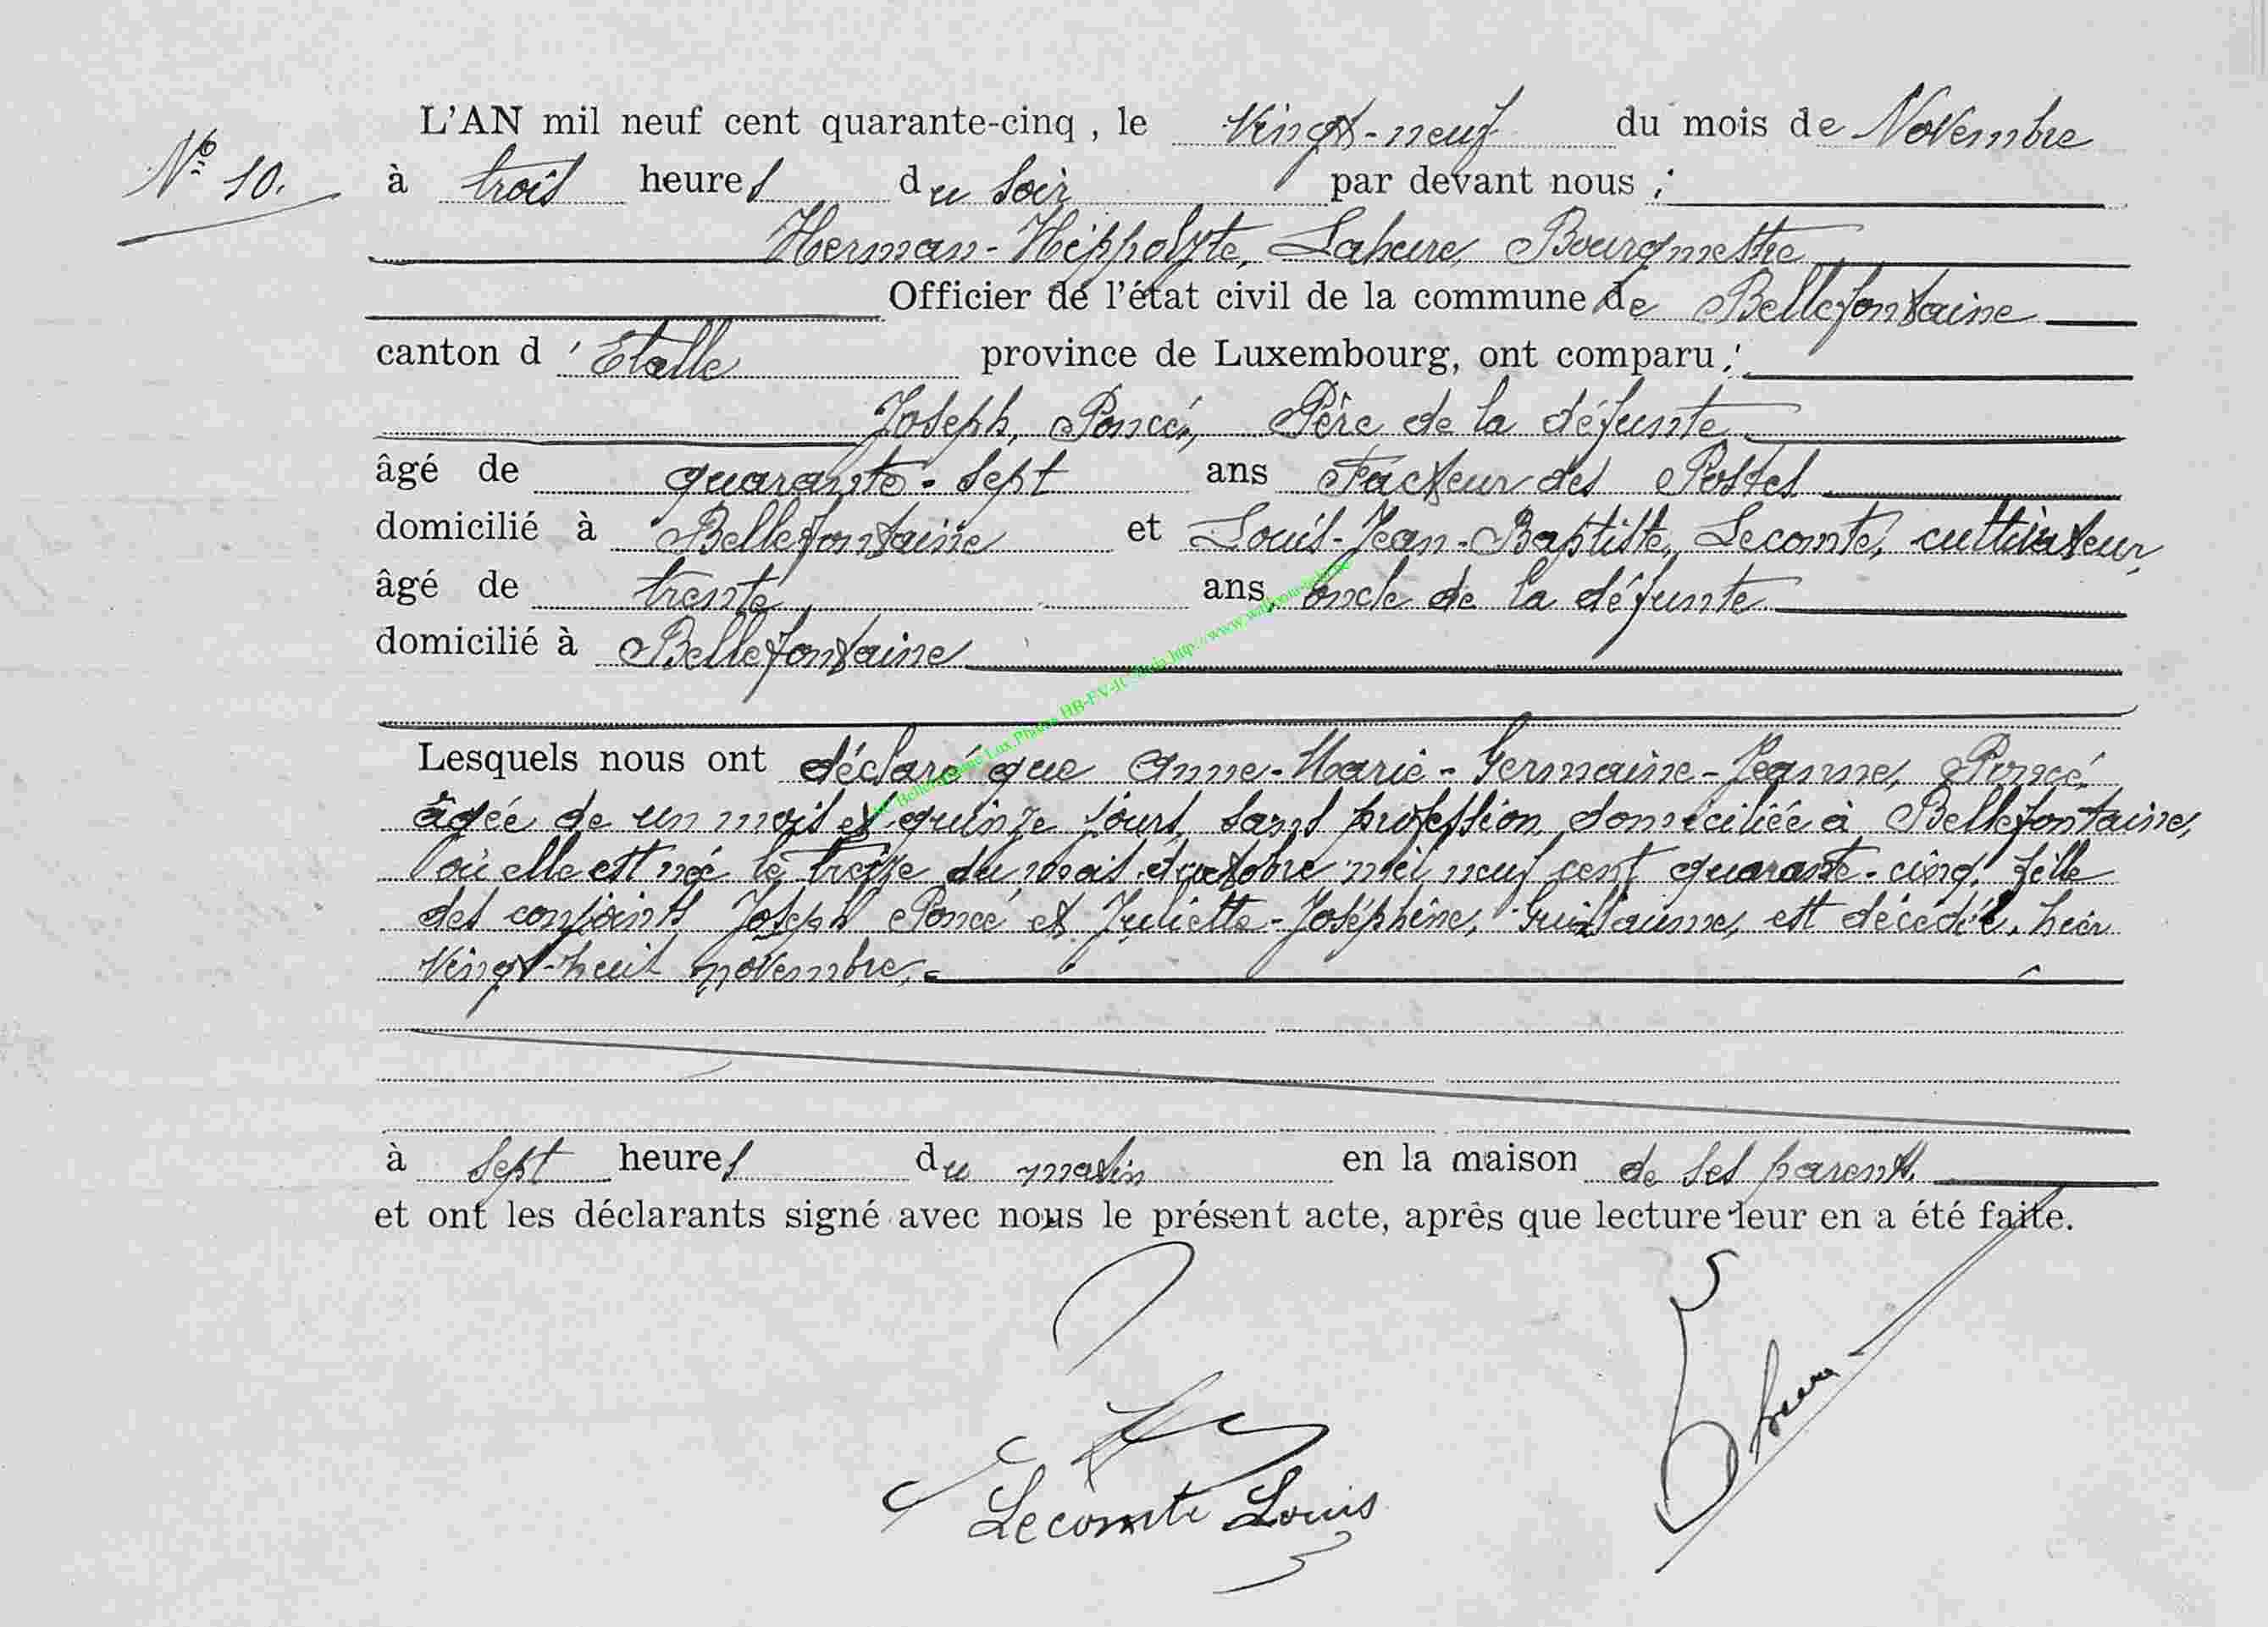 L'AN mil neuf cent quarante-cinq, le vingt-neuf du mois de Novembre
Nº 10.
à trois heures du soir par devant nous :
Herman-Hippolyte, Lahure, Bourgmestre
Officier de l'état civil de la commune de Bellefontaine
canton d'Etalle province de Luxembourg, ont comparu :
Joseph, Poncé, Père de la défunte
âgé de quarante-sept ans Facteur des Postes
domicilié à Bellefontaine et Louis-Jean-Baptiste, Lecomte, cultivateur,
âgé de trente, ans, oncle de la défunte
domicilié à Bellefontaine
Lesquels nous ont déclaré que Anne-Marie-Germaine-Jeanne, Poncé,
âgée de un mois et quinze jours, sans profession, domiciliée à Bellefontaine,
où elle est née le treize du mois d'octobre mil neuf cent quarante-cinq, fille
des conjoints Joseph Poncé et Juliette-Joséphine, Guillaume, est décédée, hier
vingt-huit novembre,
à sept heures du matin en la maison de ses parents.
et ont les déclarants signé avec nous le présent acte, après que lecture leur en a été faite.
Lecomte Louis